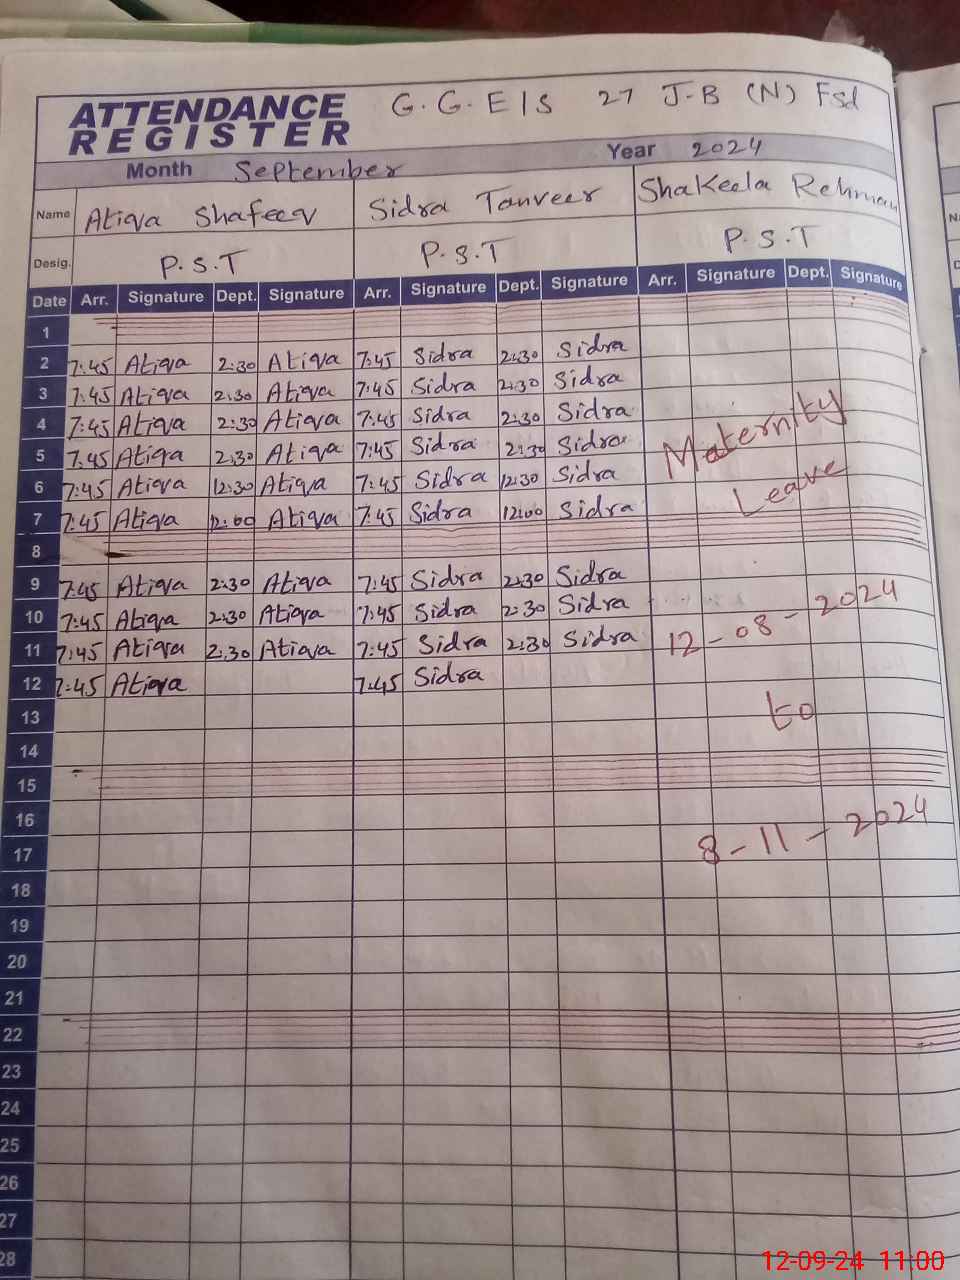 ATTENDANCE REGISTER G.G.E/S 27 J-B (N) Fsd
Month September Year 2024
Name Atiqa Shafeeq Sidra Tanveer Shakeela Rehman
Desig. P.S.T P.S.T P.S.T
Date Arr. Signature Dept. Signature Arr. Signature Dept. Signature Arr. Signature Dept. Signature
1
2 7:45 Atiqa 2:30 Atiqa 7:45 Sidra 2:30 Sidra
3 7:45 Atiqa 2:30 Atiqa 7:45 Sidra 2:30 Sidra
4 7:45 Atiqa 2:30 Atiqa 7:45 Sidra 2:30 Sidra
5 7:45 Atiqa 2:30 Atiqa 7:45 Sidra 2:30 Sidra Maternity
6 7:45 Atiqa 12:30 Atiqa 7:45 Sidra 12:30 Sidra Leave
7 7:45 Atiqa 12:00 Atiqa 7:45 Sidra 12:00 Sidra
8
9 7:45 Atiqa 2:30 Atiqa 7:45 Sidra 2:30 Sidra
10 7:45 Atiqa 2:30 Atiqa 7:45 Sidra 2:30 Sidra
11 7:45 Atiqa 2:30 Atiqa 7:45 Sidra 2:30 Sidra 12-08-2024
12 7:45 Atiqa 7:45 Sidra
13 to
14
15
16
17 8-11-2024
18
19
20
21
22
23
24
25
26
27
28
12-09-24 11:00